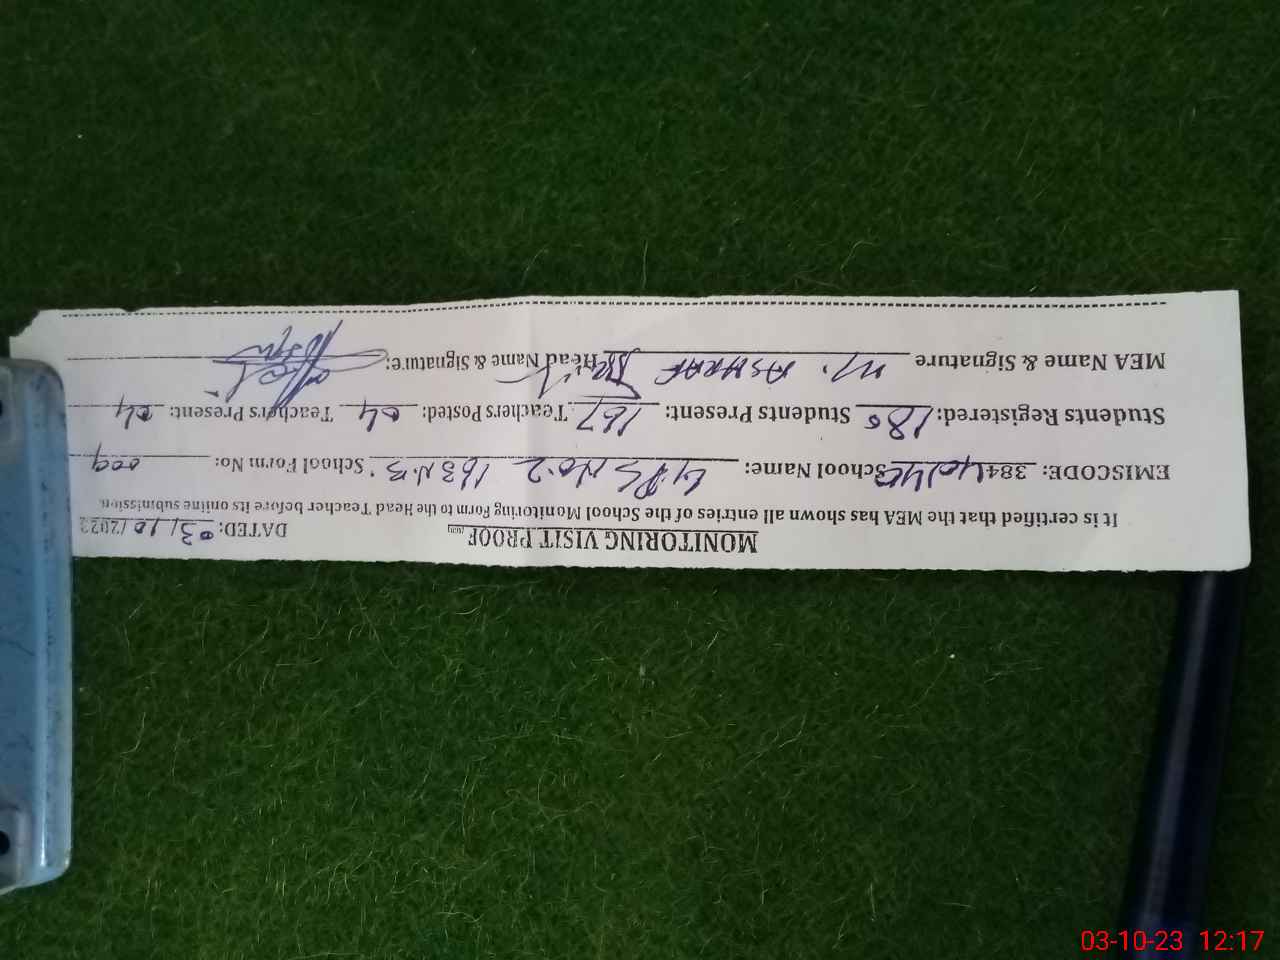 MONITORING VISIT PROOF
DATED: 03/10/2023
It is certified that the MEA has shown all entries of the School Monitoring Form to the Head Teacher before its online submission.
EMISCODE: 384 School Name: GPS No.2 163 N.B School Form No: 009
Students Registered: 180 Students Present: 167 Teachers Posted: 04 Teachers Present: 04
MEA Name & Signature M. ASHRAF Head Name & Signature:
03-10-23 12:17